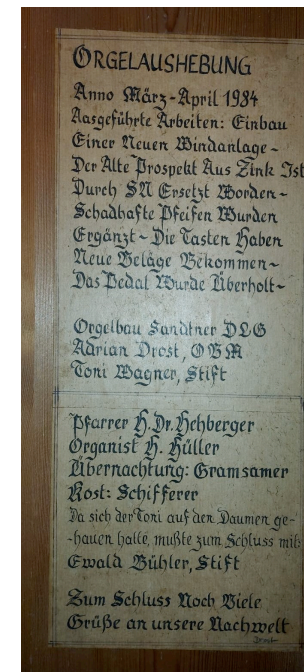 ORGELAUSHEBUNG
Anno März-April 1984
Ausgeführte Arbeiten: Einbau
Einer Neuen Windanlage~
Der Alte Prospekt Aus Zink Ist
Durch SN Ersetzt Worden~
Schadhafte Pfeifen Wurden
Ergänzt~Die Tasten Haben
Neue Beläge Bekommen~
Das Pedal Wurde Überholt~
Orgelbau Sandtner DLG
Adrian Drost, OBM
Toni Wagner, Stift
Pfarrer H. Dr. Hehberger
Organist H. Hüller
Übernachtung: Gramsamer
Kost: Schifferer
Da sich der Toni auf den Daumen ge-
-hauen hatte, mußte zum Schluss mit
Ewald Bühler, Stift
Zum Schluss Noch Viele
Grüße an unsere Nachwelt
Drost